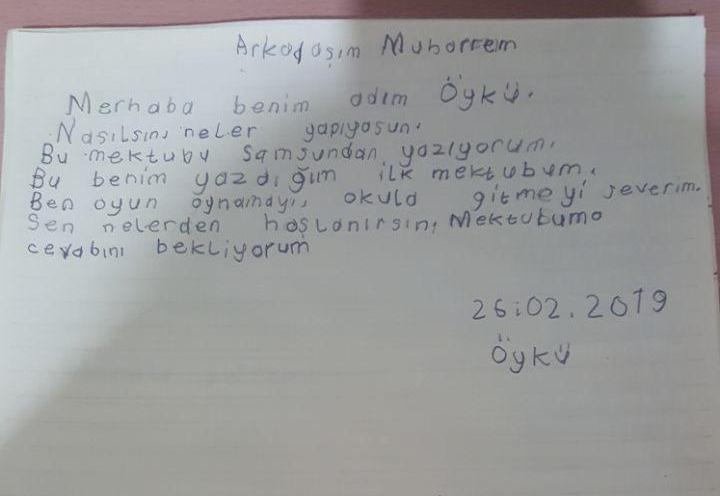 Arkadaşım Muharrem
Merhaba benim adım Öykü.
Nasılsın, neler yapıyosun.
Bu mektubu Samsundan yazıyorum.
Bu benim yazdığım ilk mektubum.
Ben oyun oynamayı, okula gitmeyi severim.
Sen nelerden hoşlanırsın, Mektubuma
cevabını bekliyorum
26:02.2019
Öykü